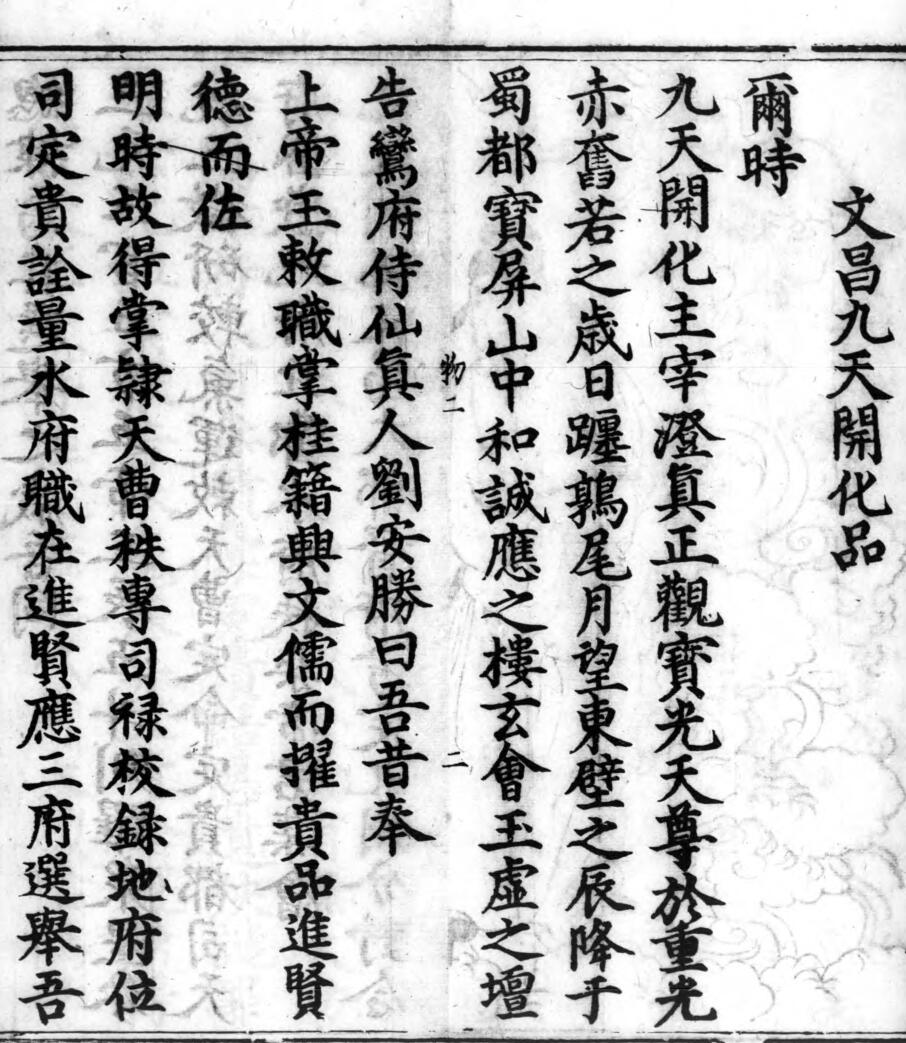 文昌九天開化品
爾時
九天開化主宰澄真正觀寶光天尊於重光
赤奮若之歲日躔鶉尾月望東壁之辰降于
蜀都寶屏山中和誠應之樓玄會玉虛之壇
物二
二
告鸞府侍仙真人劉安勝曰吾昔奉
上帝玉敕職掌桂籍興文儒而擢貴品進賢
德而佐
明時故得掌隸天曹秩專司祿校錄地府位
司定貴詮量水府職在進賢應三府選舉吾